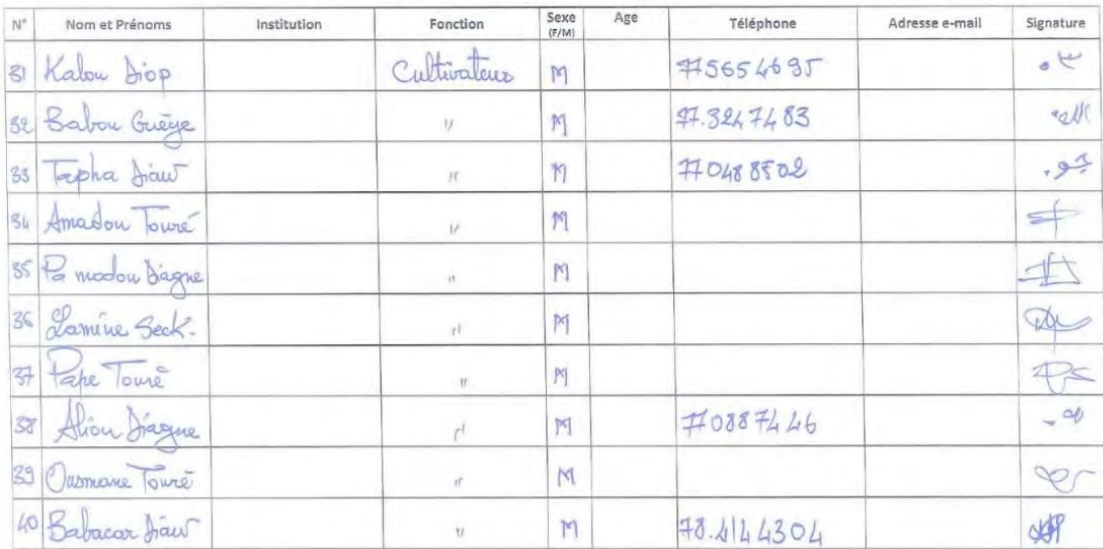 N° Nom et Prénoms Institution Fonction Sexe (F/M) Age Téléphone Adresse e-mail Signature
31 Kalou Diop Cultivateur M 775654695
32 Babou Guèye " M 77.3247483
33 Tapha Diaw " M 770488502
34 Amadou Touré " M
35 Pa modou Diagne " M
36 Lamine Seck. " M
37 Pape Touré " M
38 Aliou Diagne " M 770887446
39 Ousmane Touré " M
40 Babacar Diaw " M 78.4144304